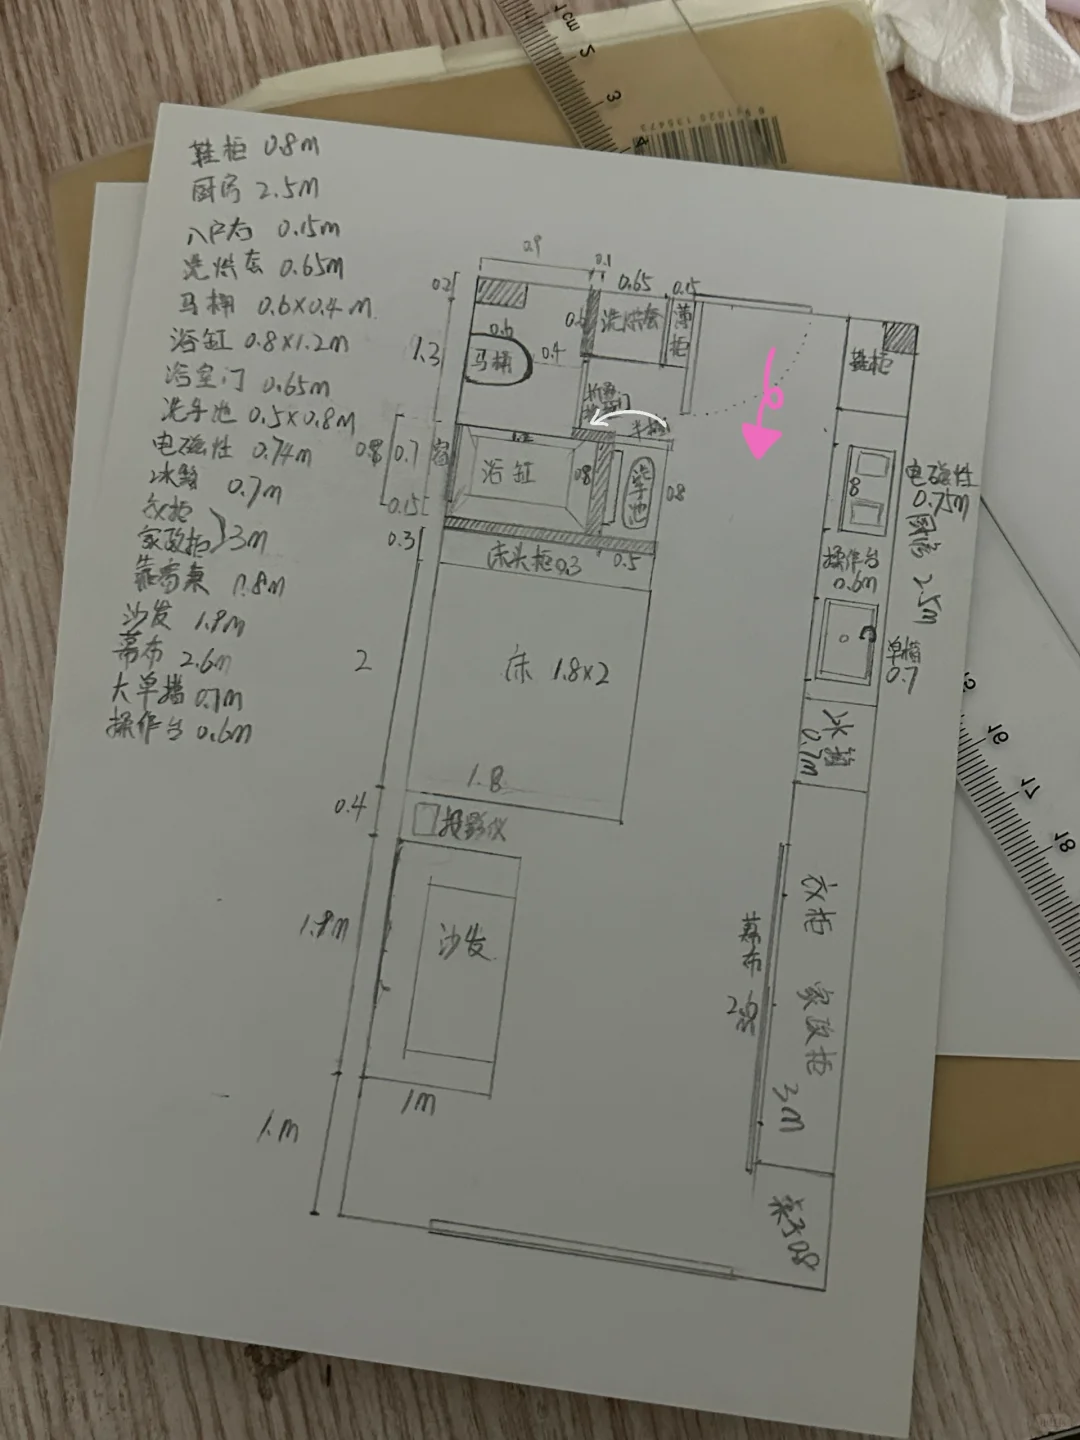 鞋柜 0.8m
厨房 2.5m
入户右 0.15m
洗烘套 0.65m
马桶 0.6x0.4 m
浴缸 0.8x1.2m
浴室门 0.65m
洗手池 0.5x0.8m
电磁性 0.74m
冰箱 0.7m
衣柜
家政柜 3m
靠窗桌 1.8m
沙发 1.9m
幕布 2.6m
大单槽 0.7m
操作台 0.6m
0.9
0.1
0.65
0.15
0.2
洗烘套
薄柜
鞋柜
0.6
马桶
0.4
1.3
0.8
0.7
窗
浴缸
0.8
洗手池
0.8
0.15
8
电磁性
0.75m
厨房 2.5m
0.3
床头柜0.3
0.5
操作台
0.6m
单槽
0.7
床 1.8x2
2
1.8
冰箱
0.7m
0.4
投影仪
1.8m
沙发
1m
幕布
衣柜
家政柜
3m
1.m
桌子0.8
1cm
2
3
4
16
17
18